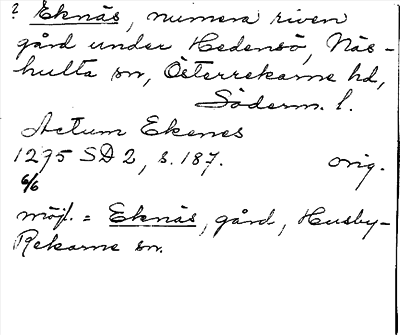 ? Eknäs, numera riven
gård under Hedensö, Näs-
hulta sn, Österrekarne hd,
Söderm. l.
Actum Ekenes
1295 SD 2, s. 187. orig.
6/6
möjl. = Eknäs, gård, Husby-
Rekarne sn.